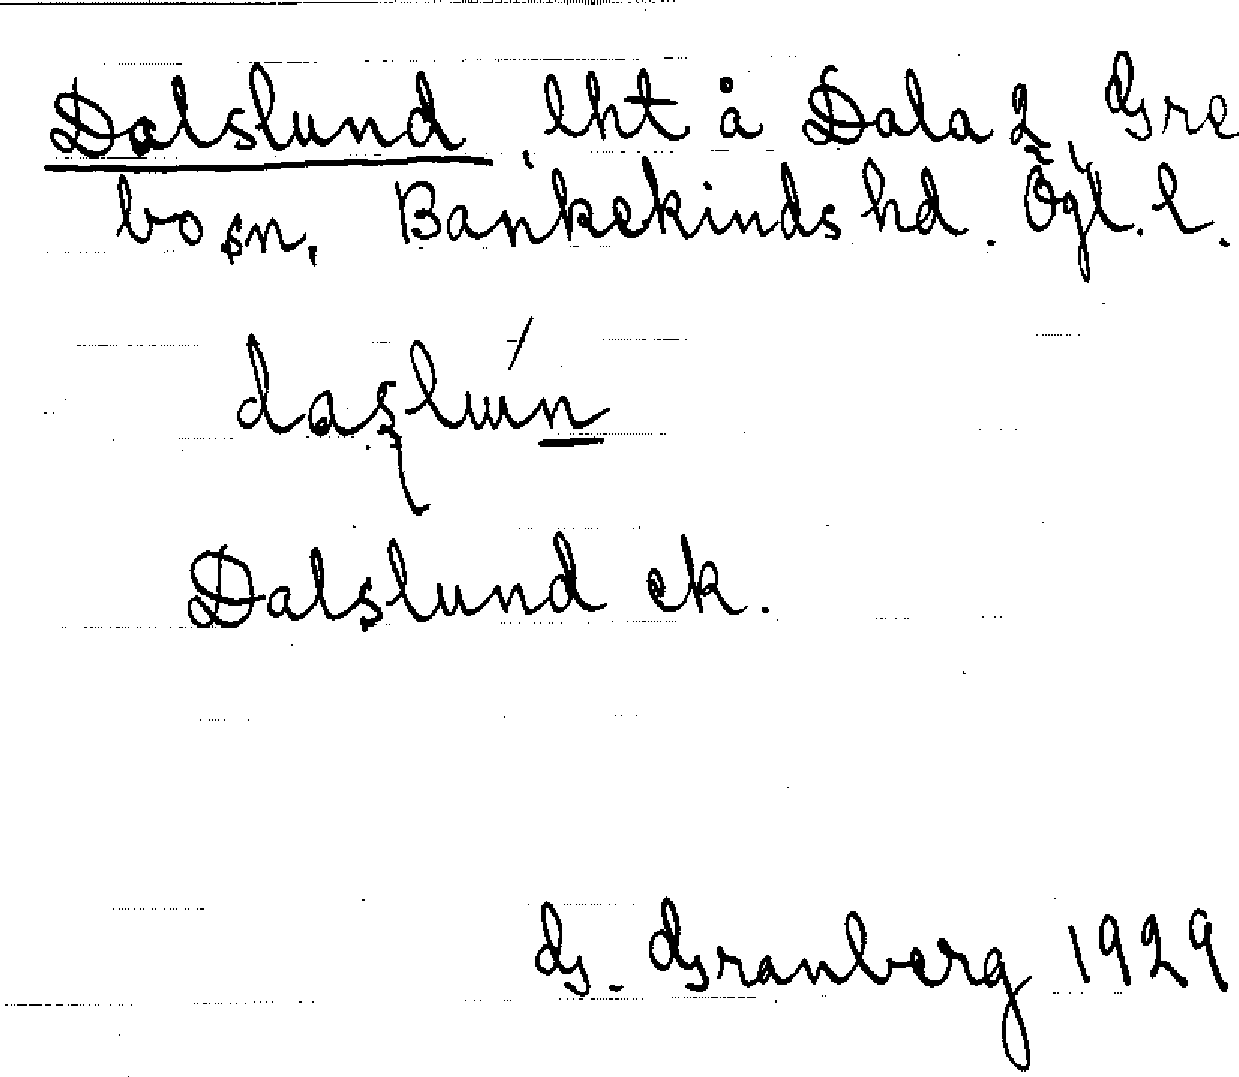 Dalslund, lht å Dala 2, Gre
bo sn, Bankekinds hd. Ögl. l.
daşlún
Dalslund ek.
G. Granberg 1929